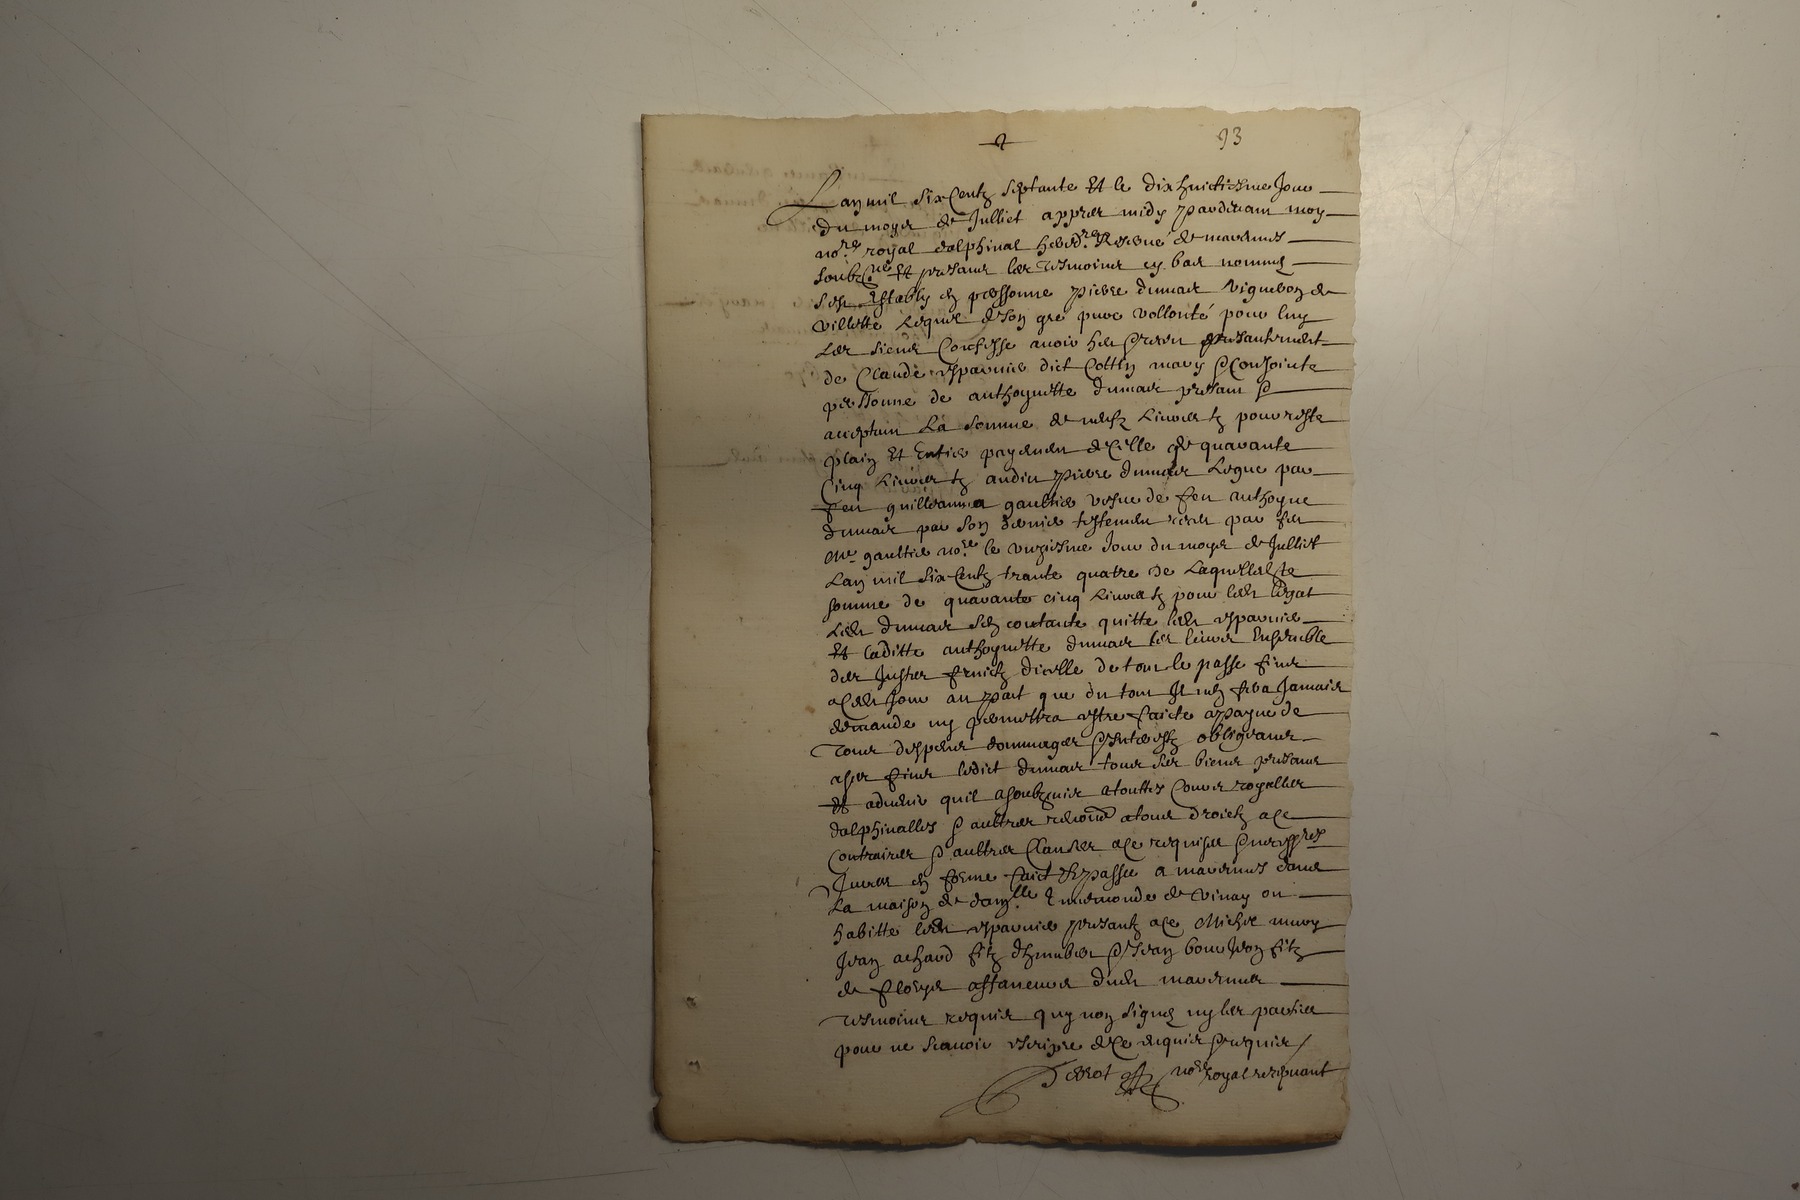 93
Lan mil six centz septante Et le dixhuictiesme Jour
du moys de Julliet appres midy pardevant moy
no.re royal dalphinal hered.re Reservé de
soubz.né Et presans les tesmoins cy bas nommes
sest Estably en perssonne pierre dumas vigneron de
villette Lequel de son gre pure vollonté pour luy
Les siens Confesse avoir heu Receu presantement
de Claude dict Cottin mary & Conjointe
perssonne de anthoynette dumas presant &
acceptant La somme de neufz Livres tz pour reste
plain Et Entier payement dicelle de quarante
Cinq Livres tz audit pierre dumas Legue par
feu gaultier vefve de feu anthoyne
dumas par son dernier testement receu par feu
Me gaultier no.re le unziesme Jour du moys de Julliet
Lan mil six centz trante quatre de Laquelle
somme de quarante cinq Livres tz pour led legat
Led dumas sen contante quitte led
Et laditte anthoynette dumas les leurs Ensemble
des Justes fruictz dicelle de tout le passe fins
a ced Jour au part que du tout Il nen fera Jamais
demande ny permettra estre faicte a payne de
tous despens dommages & interestz obligeans
a ses fins ledict dumas tous ses biens presans
Et advenir quil a soubzmis a touttes Cours royalles
dalphinalles & aultres a tous droictz a ce
Contraires & aultres Clauses a ce requises &
Jures en forme faict Et passe a dans
La maison de de vinay ou
habitte led presantz a ce Michel
Jean achard filz & Jean filz
de dud
tesmoins requis quy non signe ny les parties
pour ne scavoir escripre de ce enquis & requis /
no.re royal recepvant